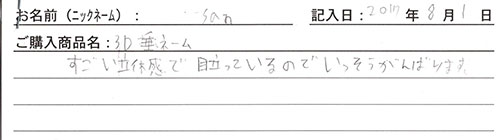 お名前（ニックネーム）： san 記入日：2017年8月1日
ご購入商品名：3D垂ネーム
すごい立体感で目立っているのでいっそうがんばります